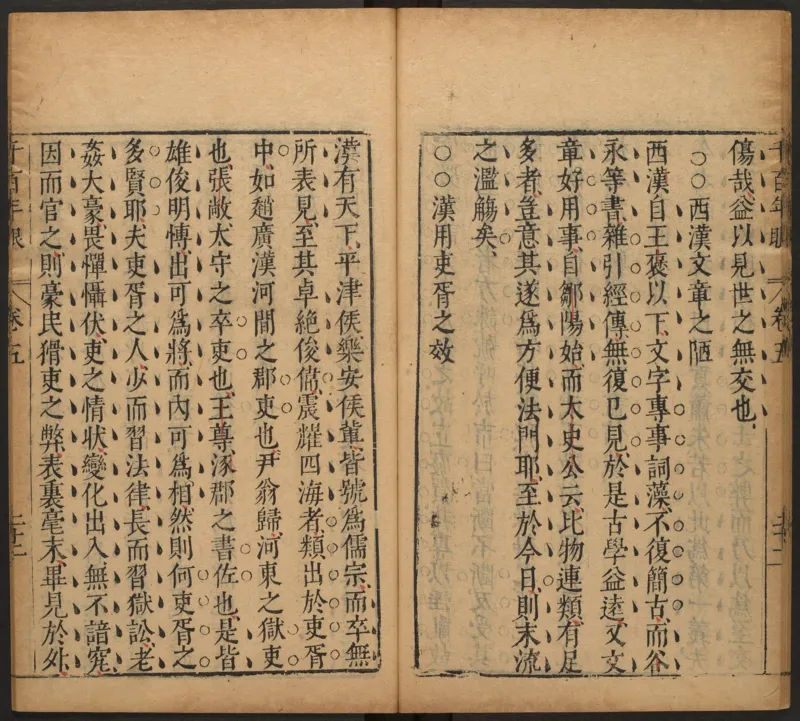 傷哉益以見世之無交也
○○西漢文章之陋
西漢自王褒以下文字專事詞藻不復簡古而谷
永等書雜引經傳無復已見於是古學益遠又文
章好用事自鄒陽始而太史公云比物連類有足
多者豈意其遂爲方便法門耶至於今日則末流
之濫觴矣
○○漢用吏胥之效
漢有天下平津侯樂安侯輩皆號爲儒宗而卒無
所表見至其卓絕俊偹震耀四海者類出於吏胥
中如趙廣漢河間之郡吏也尹翁歸河東之獄吏
也張敞太守之卒吏也王尊涿郡之書佐也是皆
雄俊明愽出可爲將而內可爲相然則何吏胥之
多賢耶夫吏胥之人少而習法律長而習獄訟老
姦大豪畏憚懾伏吏之情狀變化出入無不諳究
因而官之則豪民猾吏之弊表裏毫末畢見於外
千百年眼
卷五
二十二